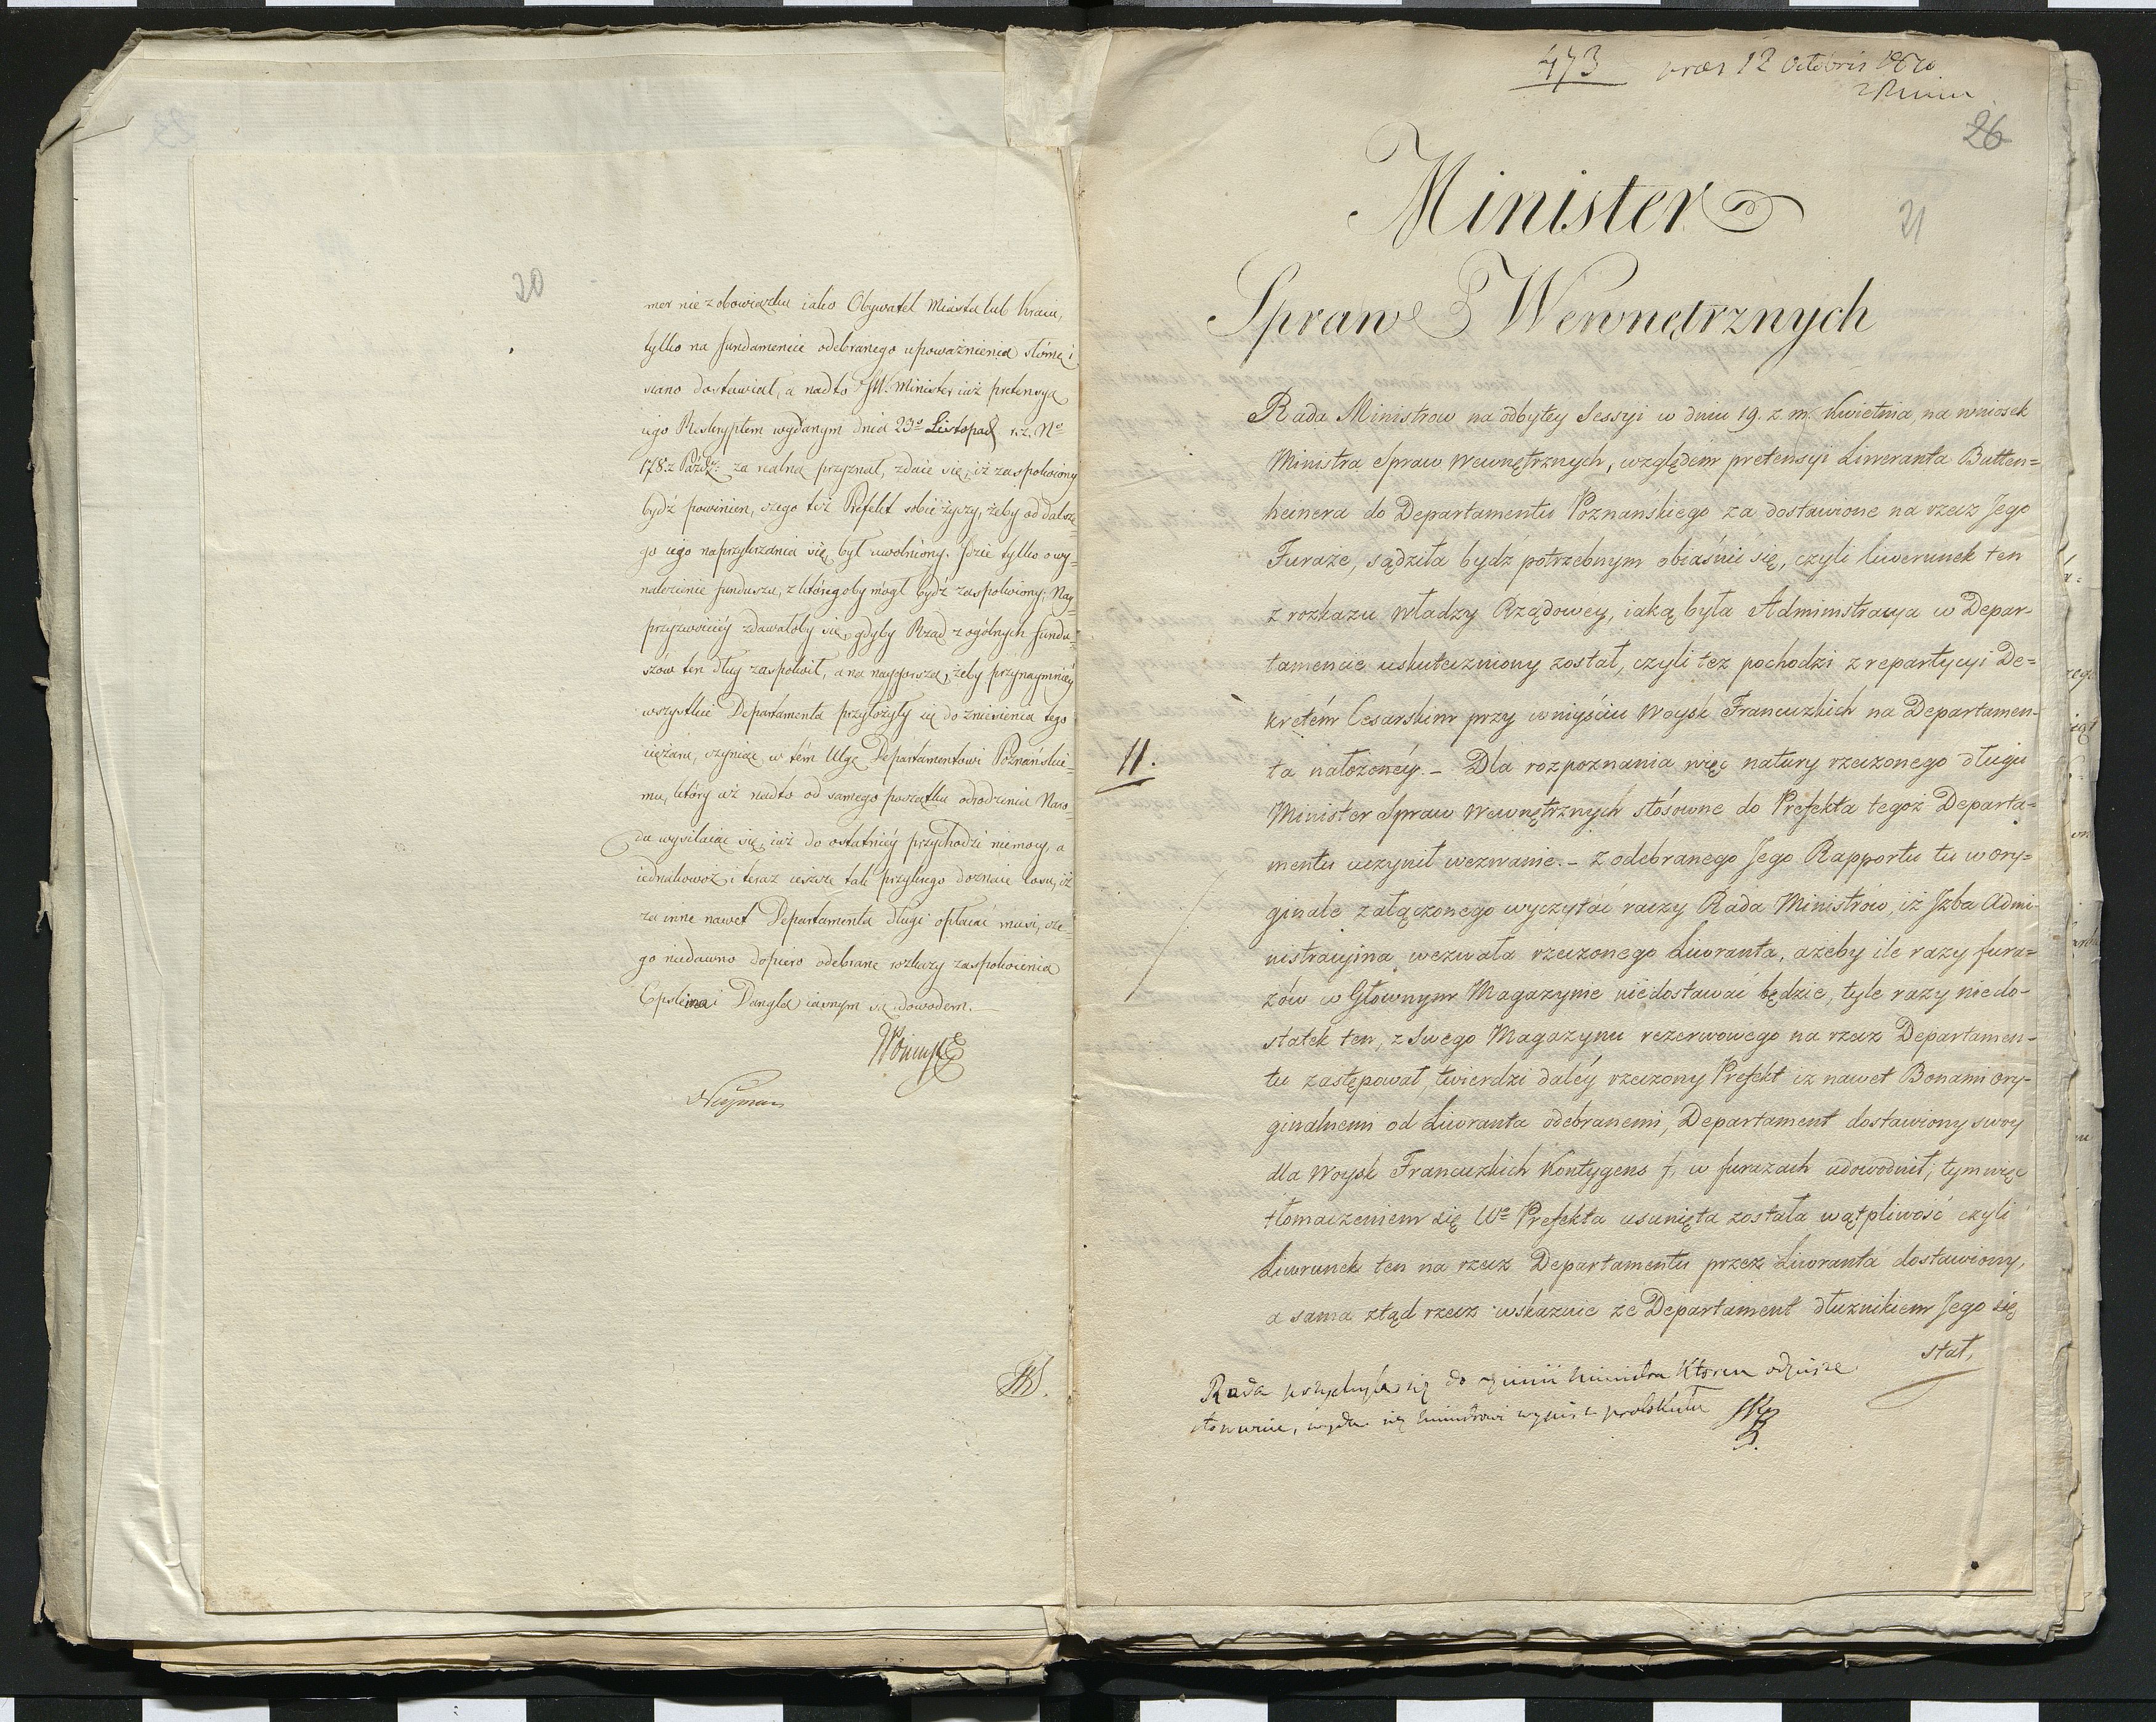 20
mer nie z obowiązku iako Obywatel Miasta lub Kraiu,
tylko na fundamencie odebranego upoważnienia słomę i
siano dostawiał, a nadto JW. Minister iuż pretensyą
iego Reskryptem wydanym dnia 23º Listopad r.z. Nº
178. z Paźdz: za realną przyznał, zdaie się, iż zaspokoiony
bydź powinien, czego też Prefekt sobie życzy, żeby od dalsze
go iego naprzykrzania się był uwolniony. Idzie tylko o wy=
nalezienie funduszu, z któregoby mógł bydź zaspokoiony; Nay=
przyzwoiciey zdawałoby się, gdyby Rząd z ogólnych fundu=
szów ten dług zaspokoił, a na naygorszą, żeby przynaymniey
wszystkie Departamenta przyłożyły się do zniesienia tego
ciężaru, czyniąc w tém Ulgę Departamentowi Poznańskie=
mu, który iuż nadto od samego początku odrodzenia Naro=
du wysilaiąc się, iuż do ostatniey przychodzi niemocy, a
iednakowoż i teraz ieszcze tak przykrego doznaie losu, iż
za inne nawet Departamenta długi opłacać musi, cze=
go niedawno dopiero odebrane rozkazy zaspokoienia
Epsteina i Dangla iasnym są dowodem.
Neyman
473 præs 12 Octobris 1810
26
Minister
21
Spraw Wewnętrznych
Rada Ministrow na odbytey Sessyi w dniu 19. z. m. Kwietnia, na wniosek
Ministra Spraw Wewnętrznych, względem pretensyi Liweranta Butten=
heinera do Departamentu Poznańskiego za dostawione na rzecz Jego
Furaże, sądziła bydź potrzebnym obiaśnić się, czyli liwerunek ten
z rozkazu Władzy Rządowey, iaką była Administracya w Depar=
tamencie uskuteczniony został, czyli też pochodzi z repartycyi De=
kretém Cesarskim przy wniyściu Woysk Francuzkich na Departamen=
11.
ta nałożoney. – Dla rozpoznania więc natury rzeczonego długu
Minister Spraw Wewnętrznych stósowne do Prefekta tegoż Departa=
mentu uczynił wezwanie. – z odebranego Jego Rapportu tu w ory=
ginale załączonego wyczytać raczy Rada Ministrów, iż Jzba Admi=
nistracyina wezwała rzeczonego Liweranta, ażeby ile razy fura=
żów w Głównym Magazynie niedostawać będzie, tyle razy niedo=
statek ten, z Swego Magazynu rezerwowego na rzecz Departamen=
tu zastępował, twierdzi daléy rzeczony Prefekt iż nawet Bonami ory=
ginalnemi od Liweranta odebranemi, Departament dostawiony swoy
dla Woysk Francuzkich Kontygens j, w furażach udowodnił; tym więc
tłomaczeniem się Wº Prefekta usunięta została wątpliwość czyli
Liwrunek ten na rzecz Departamentu przez Liwranta dostawiony,
a sama ztąd rzecz wskazuie że Departament dłużnikiem Jego się
stał,
Rada przychyla się do opinii Ministra Któren odpisze
stosownie, wyda się Ministrowi wypis z protokułu